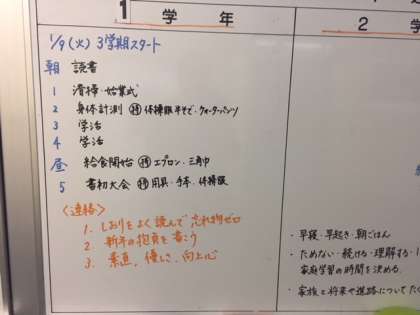 1 学年
2 学
1/9(火) 3学期スタート
朝 読書
1 清掃・始業式
2 身体計測 ㊕体操服半そで・クォーターパンツ
3 学活
4 学活
昼 給食開始 ㊕エプロン・三角巾
5 書初大会 ㊕用具・手本・体操服
<連絡>
1. しおりをよく読んで忘れ物ゼロ
2. 新年の抱負を書こう
3. 素直、優しさ、向上心
・早寝・早起き・朝ごはん
・ためない・続ける・理解する・
家庭学習の時間を決める。
・家族と将来や進路についてた